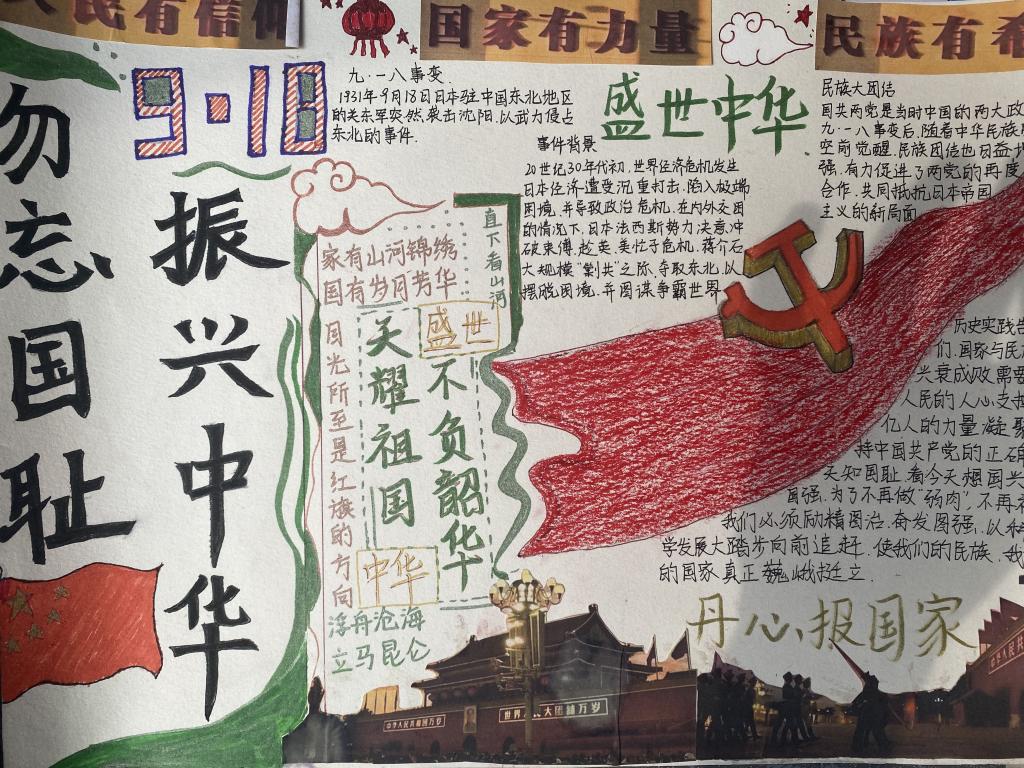 人民有信仰
国家有力量
民族有希
勿忘国耻
振兴中华
9·18
九·一八事变
1931年9月18日日本驻中国东北地区
的关东军突然袭击沈阳,以武力侵占
东北的事件.
盛世中华
事件背景
20世纪30年代初,世界经济危机发生
日本经济遭受沉重打击,陷入极端
困境,并导致政治危机,在内外交困
的情况下,日本法西斯势力决意冲
破束缚,趁英、美忙于危机,蒋介石
大规模“剿共”之际,夺取东北,以
摆脱困境,并图谋争霸世界
民族大团结
国共两党是当时中国的两大政
九·一八事变后,随着中华民族
空前觉醒,民族团结也日益
强,有力促进了两党的再度
合作,共同抵抗日本帝国
主义的新局面
直下看山河
家有山河锦绣
国有岁月芳华
目光所至是红旗的方向
关耀祖国
中华
盛世
不负韶华
浮舟沧海
立马昆仑
历史实践告
们,国家与民
兴衰成败需要
人民的人心支
亿人的力量凝聚
持中国共产党的正确
天知国耻,看今天想国兴
自强,为了不再做“弱肉”,不再
我们必须励精图治,奋发图强,以
学发展大踏步向前追赶,使我们的民族,我
的国家真正巍峨挺立.
丹心报国家
中华人民共和国万岁
世界人民大团结万岁
中华人民共